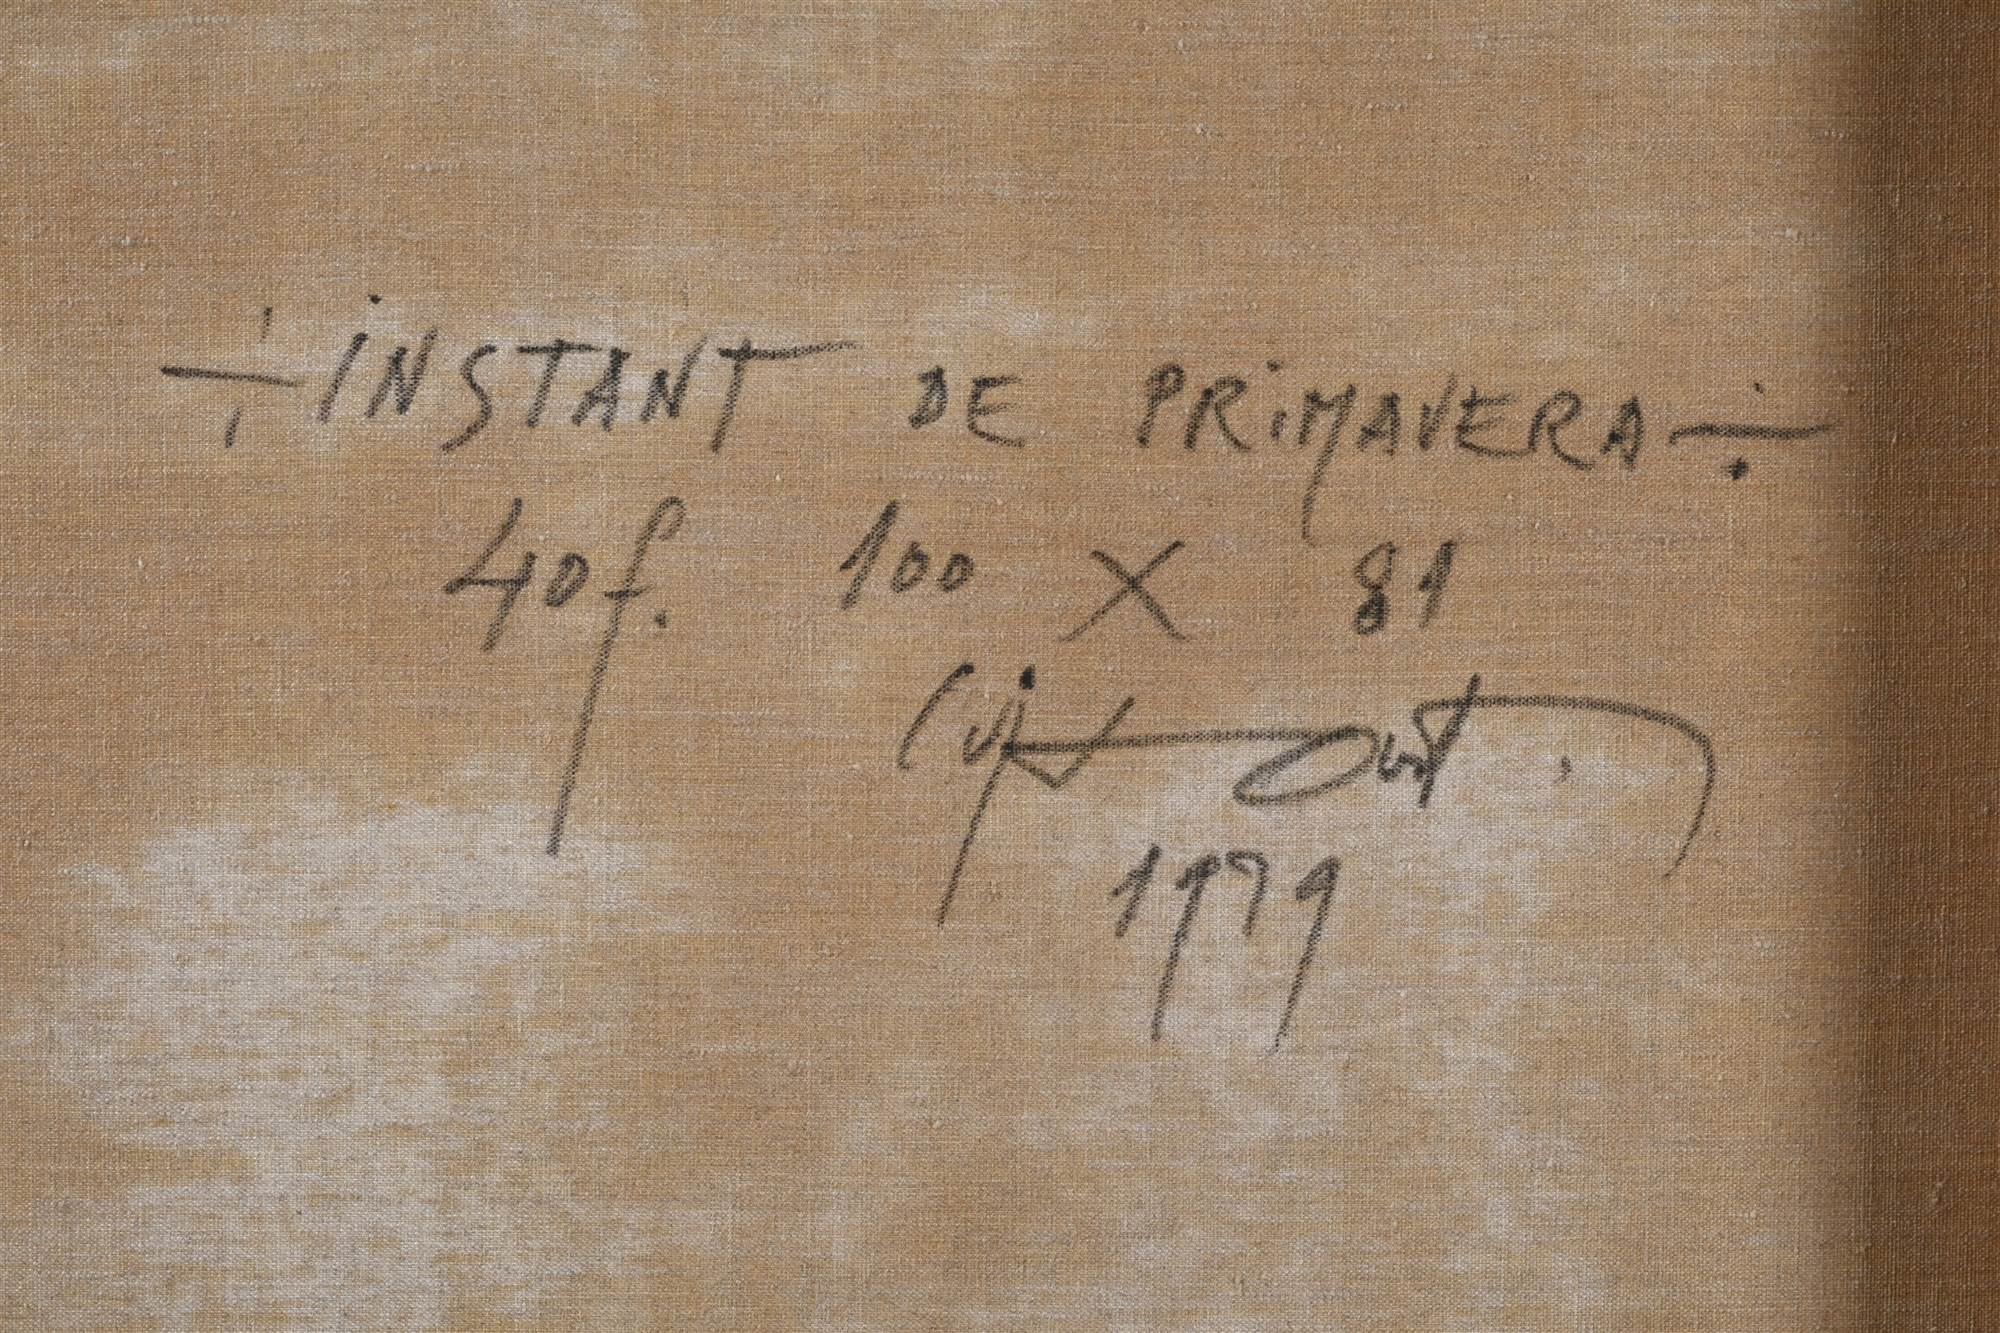 ÷ INSTANT DE PRIMAVERA ÷
40 f. 100 X 81
1979